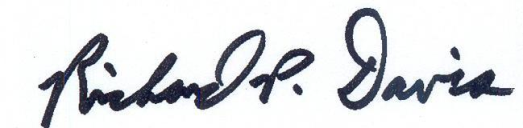 Richard P. Davis